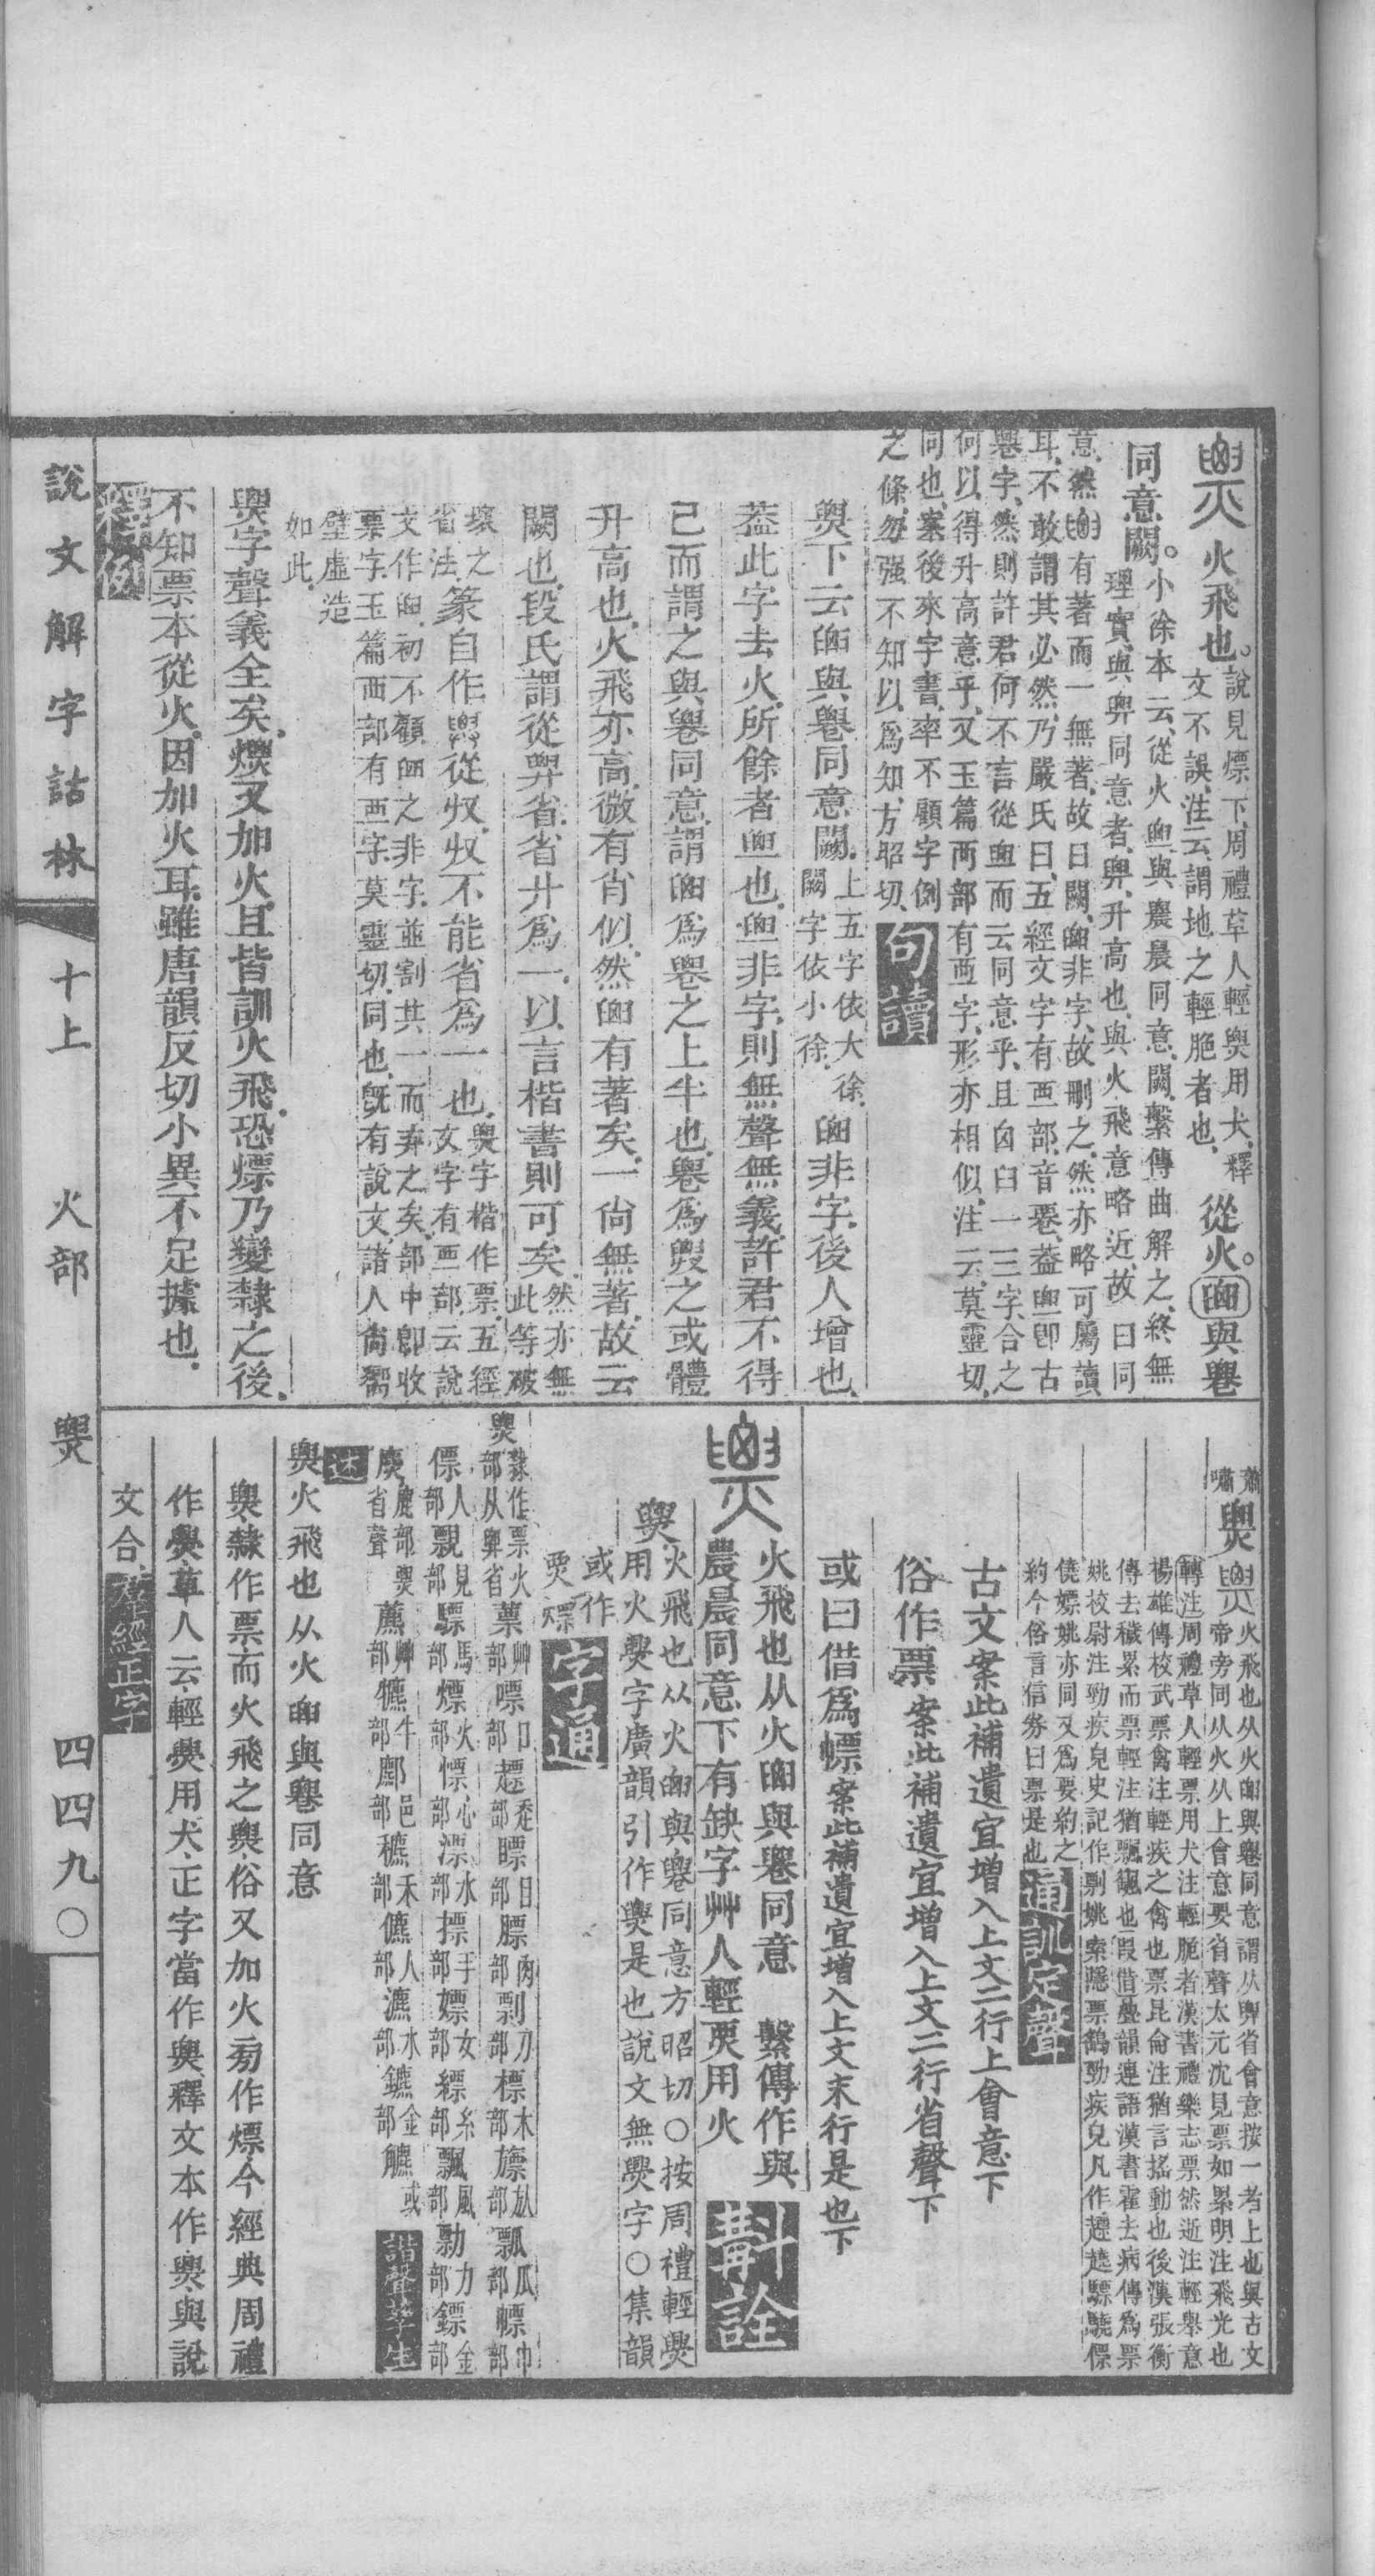 火飛也。說見熛下、周禮草人輕㷠用犬、釋
文不誤、注云、謂地之輕脃者也、從火。𦥑與䙴
同意闕。小徐本云、從火、與農晨同意、闕、繫傳曲解之、終無
理實、與䙴同意者、䙴、升高也、與火飛、意略近、故曰同
意、然有著而一無著、故曰闕、非字、故刪之、然亦略可屬讀
耳、不敢謂其必然、乃嚴氏曰、五經文字有覀部、音䙴、葢即古
䙴字、然則許君何不言從而云同意乎、且囟臼一三字、合之
何以得升高意乎、又玉篇襾部有覀字、形亦相似、注云、莫靈切、
同也、案後來字書、率不顧字例
之條、勿强不知以爲知、方昭切、句讀
㷠下云與䙴同意闕、上五字依大徐、闕字依小徐、非字、後人增也、
葢此字去火、所餘者也、非字、則無聲無義、許君不得
已而謂之與䙴同意、謂爲䙴之上半也、䙴爲䙴之或體
升高也、火飛亦高、微有肖似、然有著矣、一尙無著、故云
闕也、段氏謂從䙴省、省廾爲一、以言楷書則可矣、然亦無此等破
壞之省法、篆自作從収、収不能省爲一也、㷠字楷作票、五經文字有覀部、云說
文作、初不顧之非字、並割其一而弃之矣、部中卽收
票字、玉篇襾部有覀字、莫靈切、同也、旣有說文、諸人尙嚮
壁虛造
如此、
㷠字聲義全矣、熛又加火、且皆訓火飛、恐熛乃變隸之後、
不知票本從火、因加火耳、雖唐韻反切小異、不足據也、
釋例
說文解字詁林 十上 火部 㷠 四四九〇
㷠 火飛也从火與䙴同意謂从䙴省會意按一者上也與古文
帝旁同从火从上會意䙴省聲太元沈見票如累明注飛光也
轉注周禮草人輕票用犬注輕脆者漢書禮樂志票然逝注輕舉意
楊雄傳校武票禽注輕疾之禽也票昆侖注猶言搖動也後漢張衡
傳去穢累而票輕注猶飄颻也叚借疊韻連語漢書霍去病傳爲票
姚校尉注勁疾皃史記作剽姚索隱票鷂勁疾皃凡作趯驃驍僄
僥嫖姚亦同又爲要約之
約今俗言信券曰票是也通訓定聲
古文案此補遺宜增入上文二行上會意下
俗作票案此補遺宜增入上文二行省聲下
或曰借爲幖案此補遺宜增入上文末行是也下
火飛也从火與䙴同意 繫傳作與
農晨同意下有缺字艸人輕㷠用火 斠詮
㷠 火飛也从火與䙴同意方昭切○按周禮輕㷠
用火㷠字廣韻引作㷠是也說文無㷠字○集韻
或作
熛 字通
㷠 隸作票火部从䙴省 蔈艸部 嘌口部 趯走部 瞟目部 膘肉部 剽刀部 標木部 旚㫃部 瓢瓜部 幖巾部
僄人部 覭見部 驃馬部 熛火部 慓心部 漂水部 摽手部 嫖女部 縹糸部 飄風部 勡力部 鏢金部
麃鹿部㷠省聲 藨艸部 犥牛部 鄜邑部 穮禾部 儦人部 瀌水部 鑣金部 䚔或 諧聲孳生
述
㷠火飛也从火與䙴同意
㷠隸作票而火飛之㷠俗又加火旁作熛今經典周禮
作㷠草人云輕㷠用犬正字當作㷠釋文本作㷠與說
文合 羣經正字